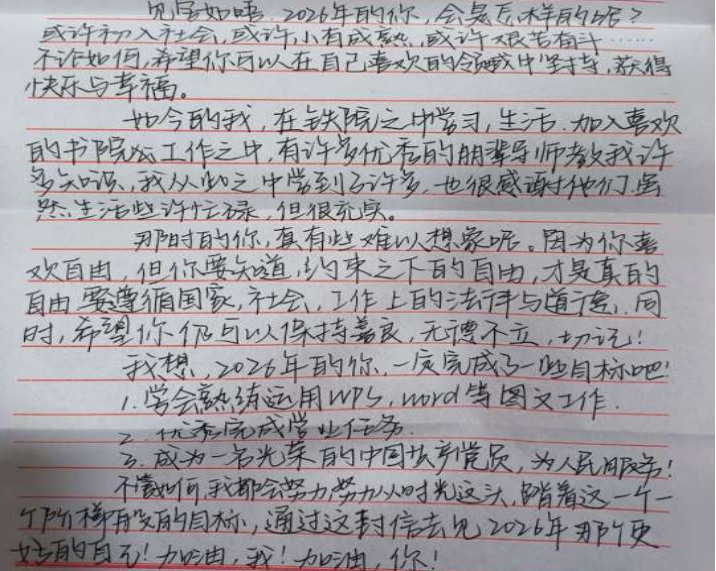 见字如晤，2026年的你，会是怎样的呢？
或许初入社会，或许小有成熟，或许艰苦奋斗……
不论如何，希望你可以在自己喜欢的领域中坚持，获得
快乐与幸福。
如今的我，在铁院之中学习，生活，加入喜欢
的书院 工作之中，有许多优秀的朋辈导师教我许
多知识，我从此之中学到了许多，也很感谢他们，虽
然生活些许忙碌，但很充实。
那时的你，真有些难以想象呢。因为你喜
欢自由，但你要知道，约束之下的自由，才是真的
自由，要遵循国家，社会，工作上的法律与道德，同
时，希望你仍可以保持善良，无德不立，切记！
我想，2026年的你，一定完成了一些目标吧！
1.学会熟练运用WPS，word等图文工作.
2.优秀完成学业任务.
3.成为一名光荣的中国共产党员，为人民服务！
不管如何，我都会努力努力从时光这头，踏着这一个一
个阶梯 的目标，通过这封信去见2026年那个更
好的自己！加油，我！加油，你！